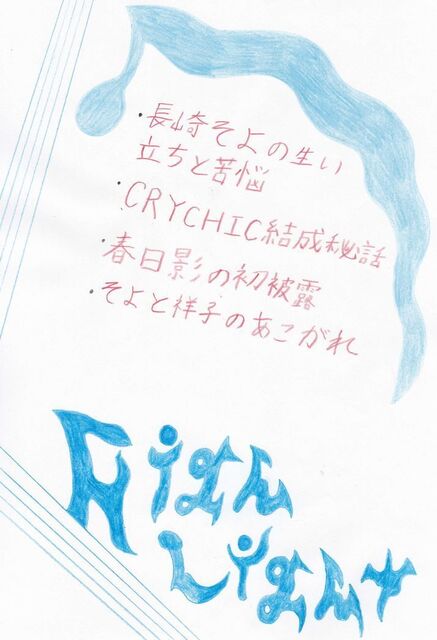 ・長崎そよの生い
立ちと苦悩
・CRYCHIC結成秘話
・春日影の初被露
・そよと祥子のあこがれ
High
Light